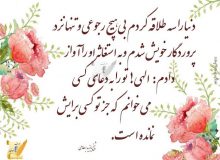 دنیا را سه طلاقه کردم بی هیچ رجوعی و تنها نزد
پروردگار خویش شدم و به استغاثه او را آواز
دادم: الهی! تو را به دعای کسی
می خوانم که جز تو کسی برایش
نمانده است.